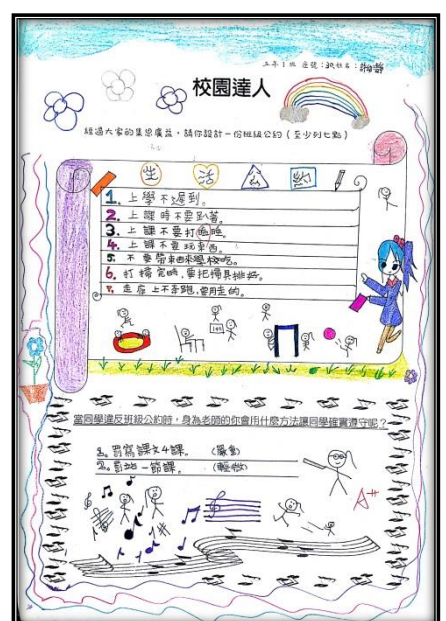 五年1班 座號：30 姓名：
校園達人
經過大家的集思廣益，請你設計一份班級公約（至少列七點）
生活公約
1. 上學不遲到。
2. 上課時不要趴著。
3. 上課不要打瞌睡。
4. 上課不要玩東西。
5. 不要帶東西來學校吃。
6. 打掃完時，要把掃具排好。
7. 走廊上不奔跑，要用走的。
當同學違反班級公約時，身為老師的你會用什麼方法讓同學確實遵守呢？
1. 罰寫課文4課。（嚴重）
2. 罰站一節課。（輕微）
A+